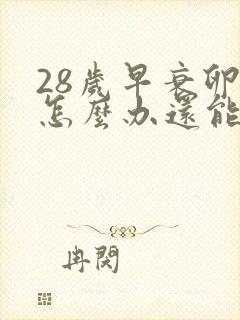 28歲早衰卵
怎麼办還能
冉閱